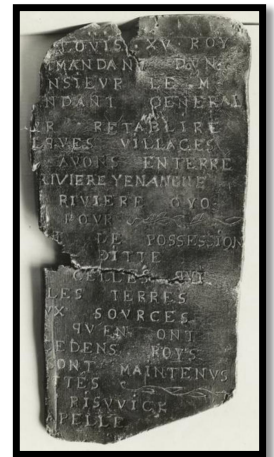 LOVIS XV ROY
MANDANT DVN
NSIEVR LE M
NDANT GENERAL
RETABLIRE
VILLAGES
AVONS ENTERRE
RIVIERE
RIVIERE OYO
POVR
DE POSSESSION
DITTE
CELLES
LES TERRES
VX SOVRCES
QVEN ONT
EDENS ROYS
ONT MAINTENVS
TTES
RISVVICK
APELLE